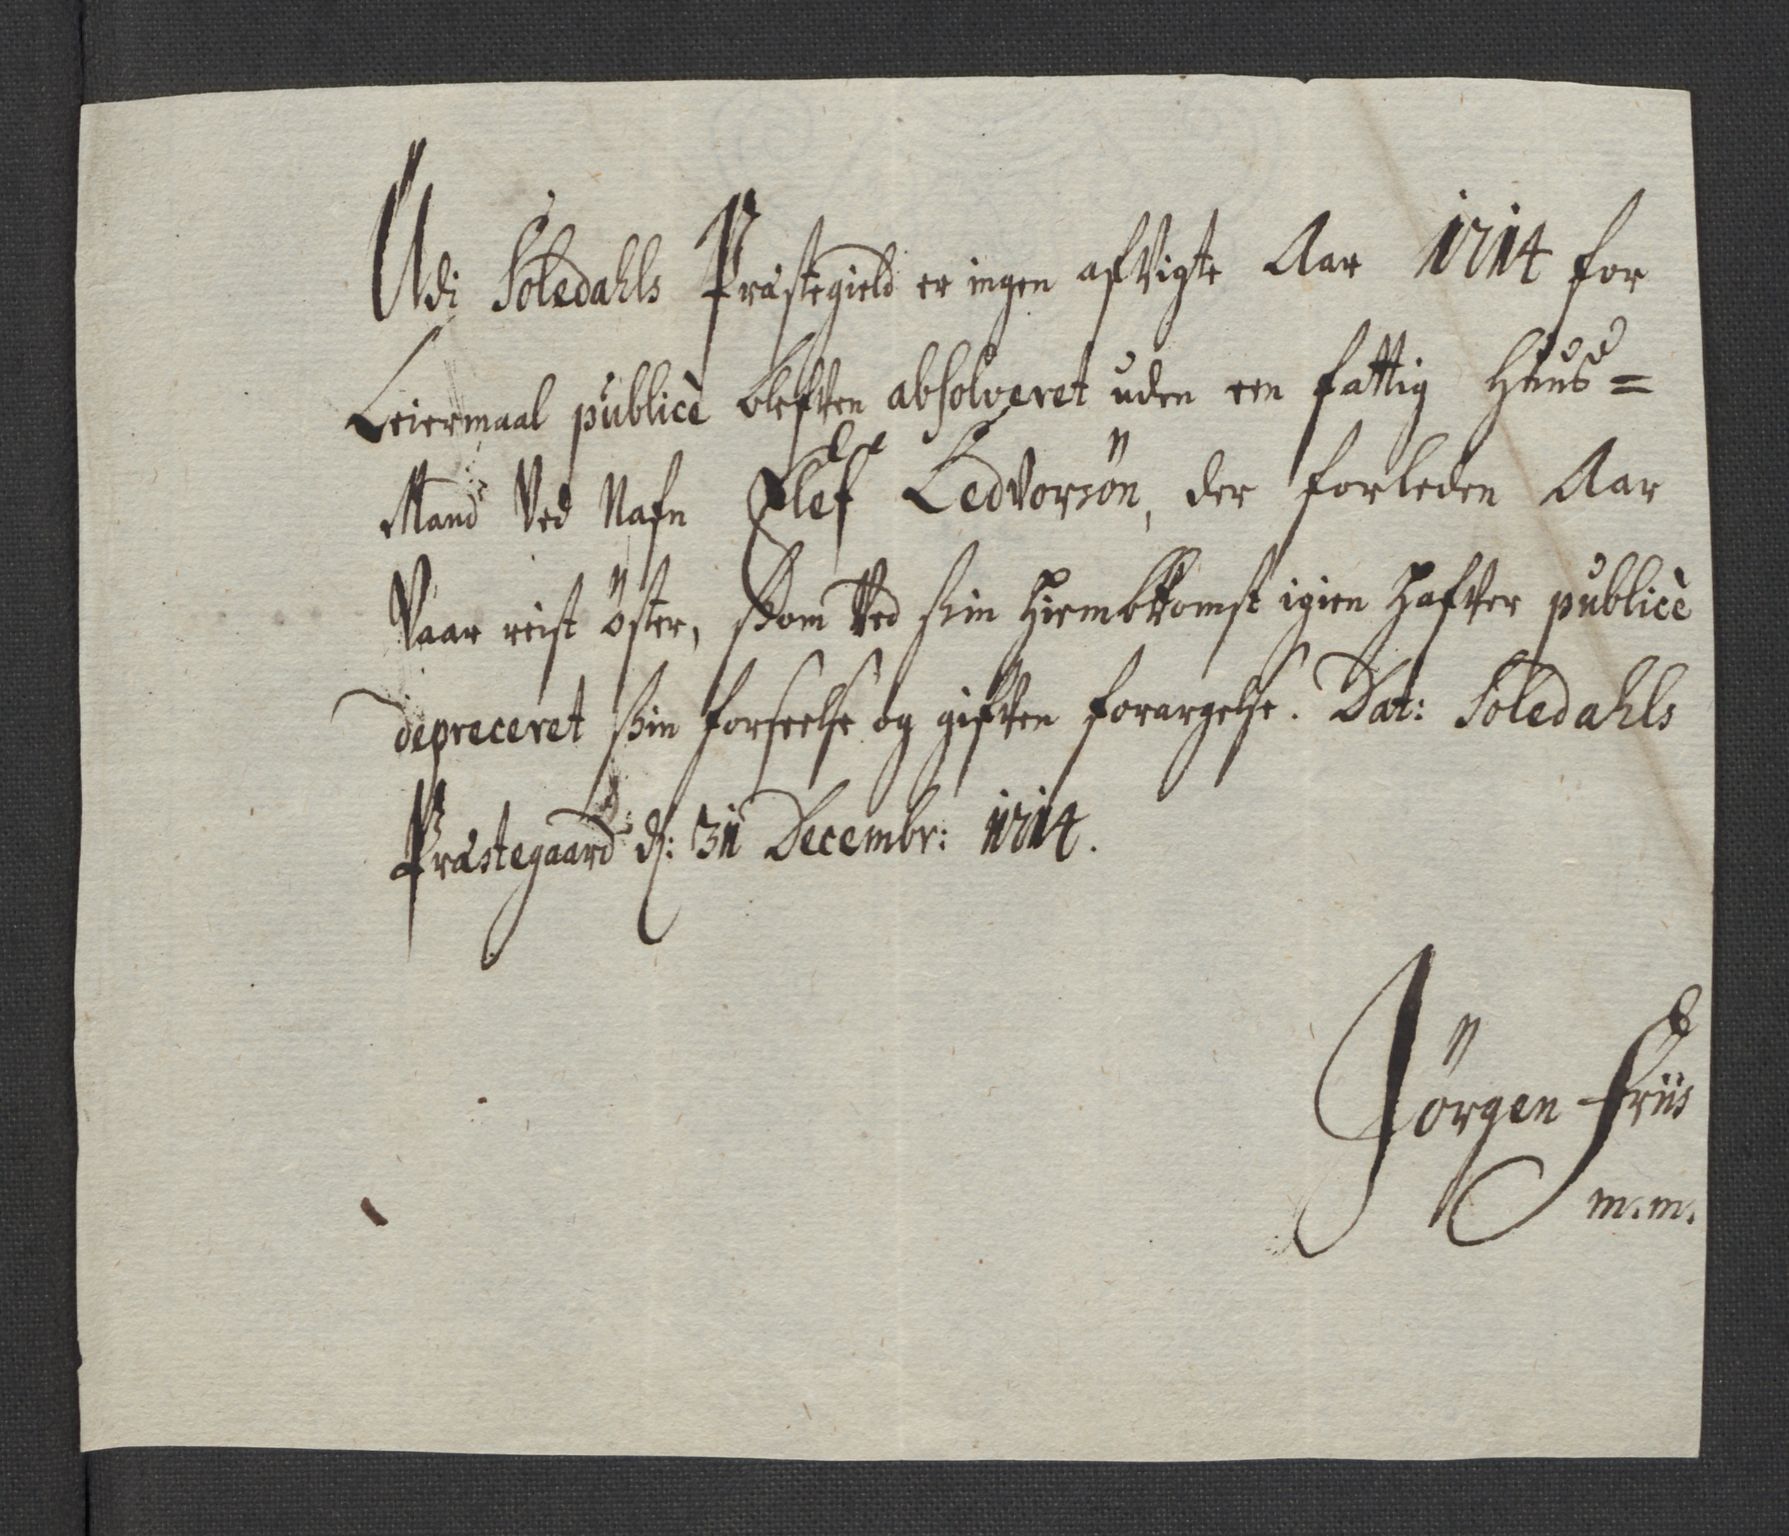 Udi Soledahls Præstegield er ingen afvigte Aar 1714 for
Leiermaal publicè blefven absolveret uden een fattig Huus=
Mand ved Nafn Olef Ledvorsön, der forleden Aar
Vaar reist öster, som ved sin hiembkomst igien hafver publicè
depreceret sin forseelse og gifven forargelse. Dat: Soledahls
Præstegaard d: 31 Decembr: 1714.
Jörgen Friis
m.m.